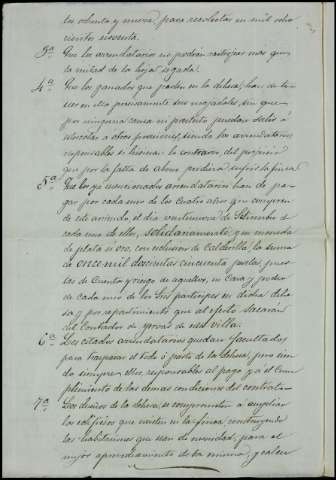 los ochenta y nueve, para recolectar en mil ocho
cientos noventa.
3ª Que los arrendatarios no podrán rastrojar mas que
la mitad de la hoja segada.
4ª Que los ganados que pasten en la dehesa, han de te-
ner en ella precisamente sus majadales, sin que
por ninguna causa ni pretesto puedan salir á
estercolar a otras posesiones, siendo los arrendatarios
responsables si hicieran lo contrario, del perjuicio
que por la falta de abono pudiera sufrir la finca
5ª Que los ya mencionados arrendatarios han de pa-
gar por cada uno de los cuatro años que compren-
de este arriendo el dia veintinueve de Setiembre de
cada uno de ellos, solidariamente, y en moneda
de plata ú oro, con exclusion de Calderilla, la suma
de once mil doscientas cincuenta pesetas, pues-
tas de cuenta y riesgo de aquellos, en casa y poder
de cada uno de los Sres partícipes en dicha dehe-
sa y por repartimiento que al efecto sacará
del Contador de yervas de esta villa.
6ª Los citados arrendatarios quedan facultados
para traspasar el todo ó parte de la dehesa, pero sien-
do siempre ellos responsables al pago y al cum-
plimiento de las demas condiciones del contrato.
7ª Los dueños de la dehesa, se comprometen á ampliar
los edificios que existen en la finca, construyendo
las habitaciones que sean de necesidad, para el
mejor aprovechamiento de la misma, y